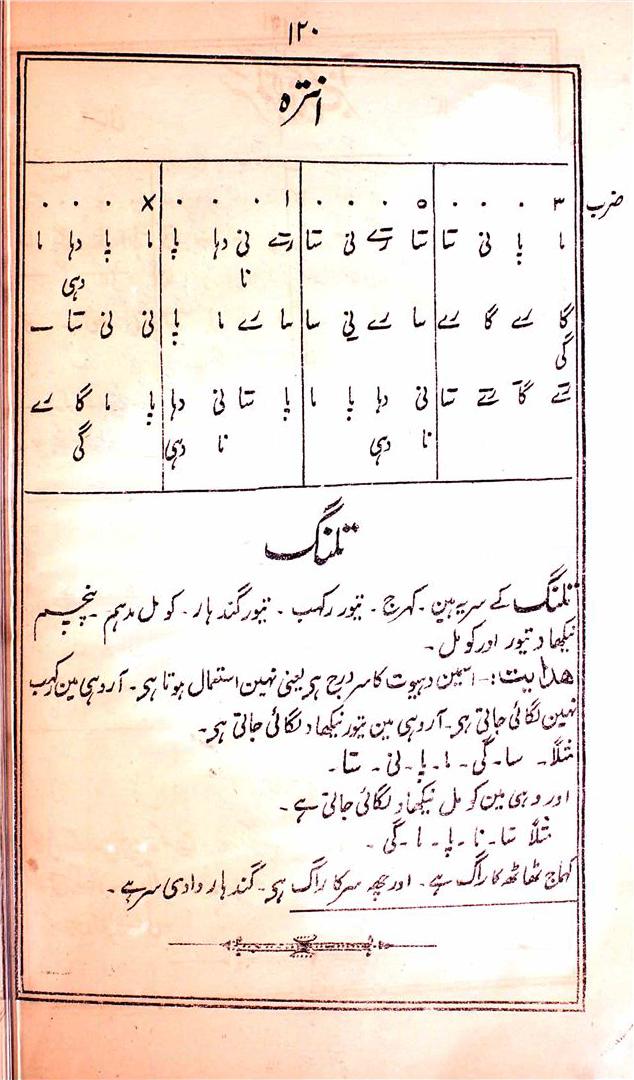 ۱۲۰
انترہ
ضرب ۳ ۰ ۰ ۰ ۵ ۰ ۰ ۰ ۱ ۰ ۰ ۰ × ۰ ۰ ۰
ما پا نی ستا ستا رتے نی ستا رتے نی دہا پا ما پا دہا ما
نا دہی
گا رے گا رے سا رے نی سا سا رے ما پا نی نی ستا ــ
گی
رتے گا رتے ستا نی دہا پا ما پا ستا نی دہا پا ما گا رے
نا دہی نا دہی گی
تلنگ
تلنگ کے سر یہ ہین ۔ کہرج ۔ تیور رکہب ۔ تیور گندہار ۔ کومل مدہم ۔ پنچم
نیکھاد تیور اور کومل ۔
ھدایت :۔ اسمین دہیوت کا سر ورج ہی یعنی نہین استعمال ہوتا ہی ۔ آروہی مین رکہب
نہین لگائی جاتی ہی ۔ آروہی مین تیور نیکھاد لگائی جاتی ہی ۔
مثلاً ۔ سا ۔ گی ۔ ما ۔ پا ۔ نی ۔ ستا ۔
اور وہی مین کومل نیکھاد لگائی جاتی ہے ۔
مثلاً ستا ۔ نا ۔ پا ۔ ما ۔ گی ۔
کہماج ٹھاٹھ کا راگ ہے ۔ اور چھ سر کا راگ ہی ۔ گندہار وادی سر ہے ۔